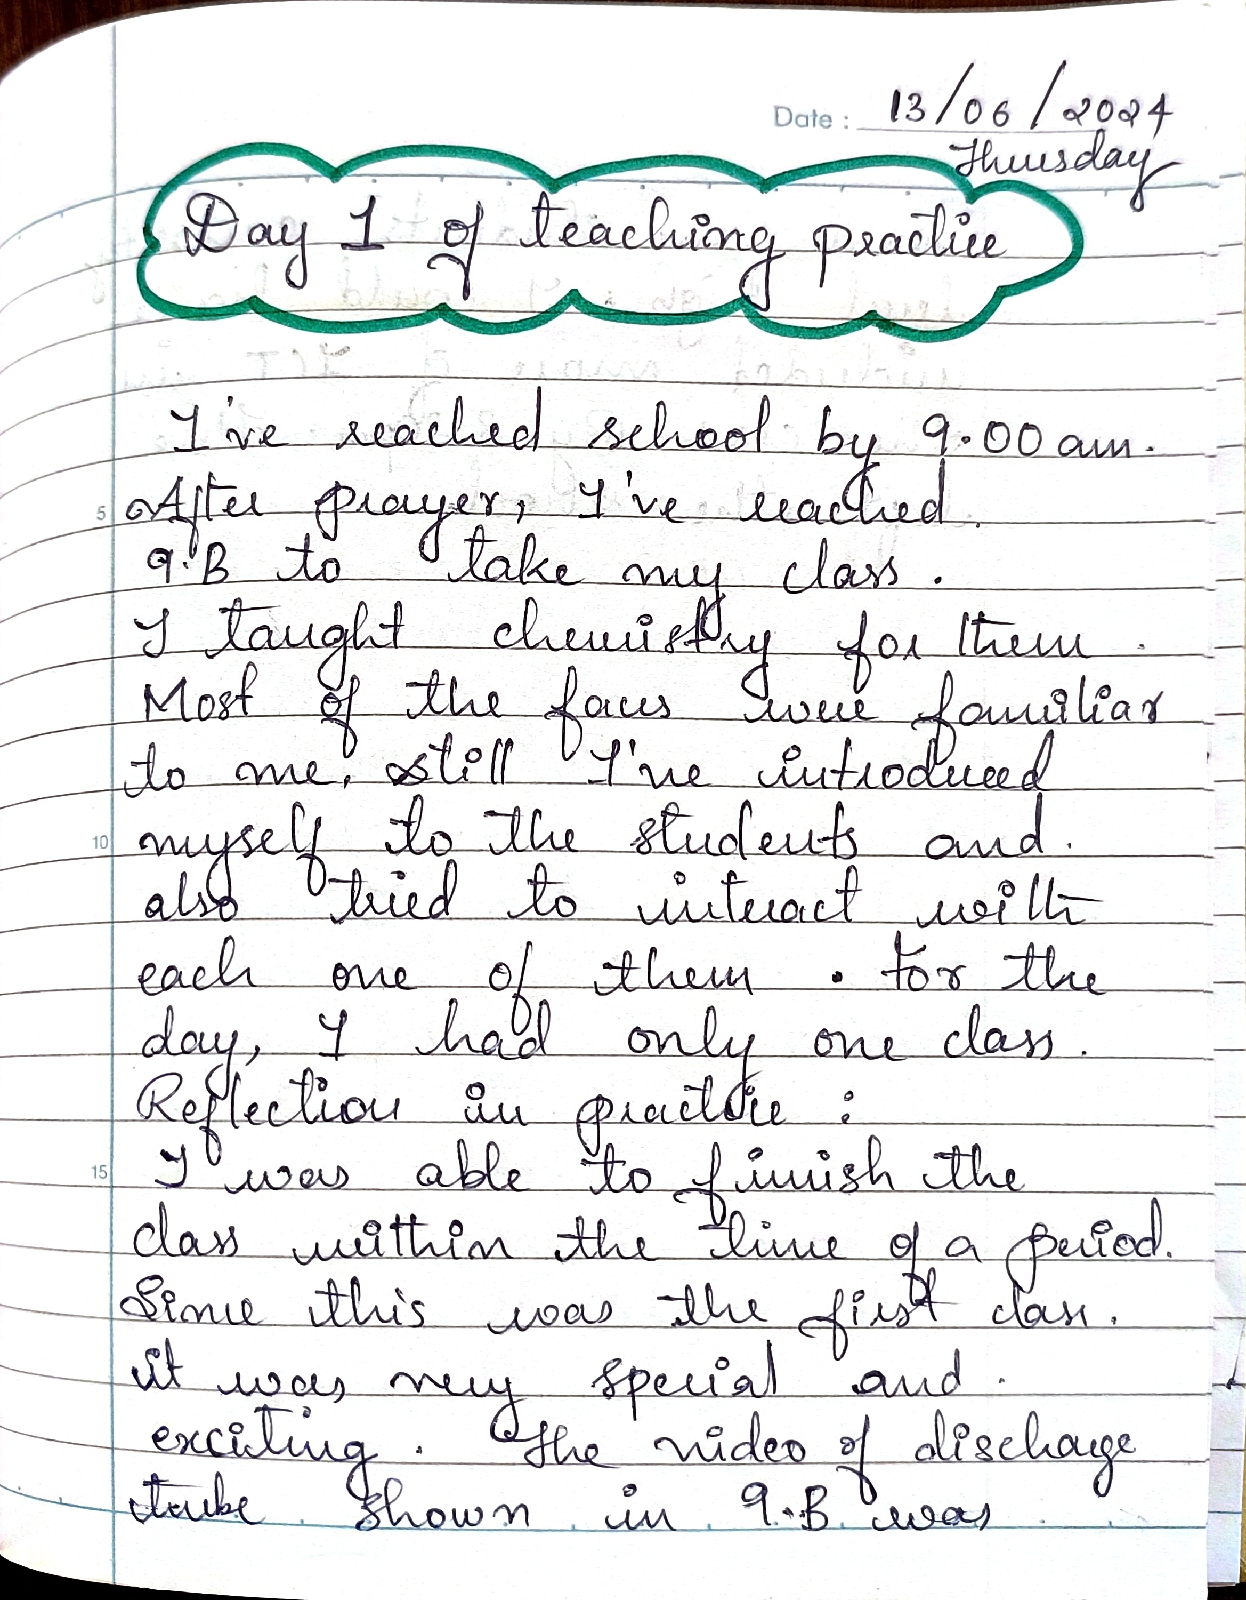 Date: 13/06/2024
Thursday
Day 1 of teaching practice
I've reached school by 9.00 am.
5 After prayer, I've reached
9.B to take my class.
I taught chemistry for them.
Most of the faces were familiar
to me, still I've introduced
10 myself to the students and
also tried to interact with
each one of them. For the
day, I had only one class.
Reflection in practice:
15 I was able to finish the
class within the time of a period.
Since this was the first class,
it was very special and
exciting. The video of discharge
tube shown in 9.B was